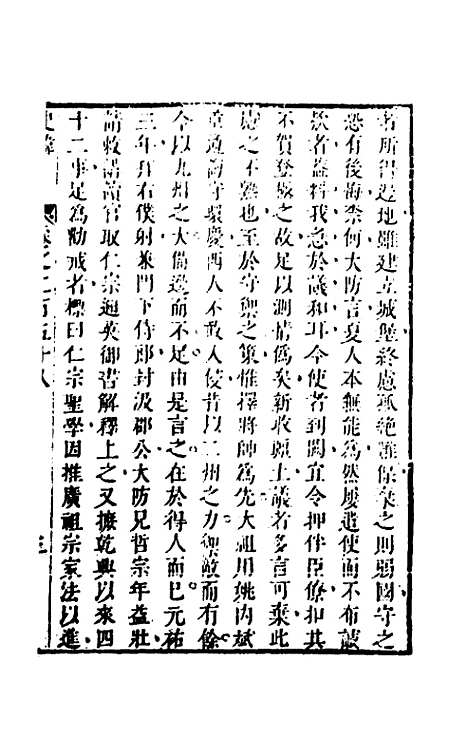 者所得邊地雖建立城堡終慮孤絕難保棄之則弱國守之
恐有後悔柰何大防言夏人本無能為然屢遣使而不布誠
欵者蓋料我急於議和耳今使者到闕宜令押伴臣僚扣其
不賀登極之故足以測情偽矣新收疆土議者多言可棄此
慮之不熟也至於守禦之策惟擇將帥為先太祖用姚內斌
董遵誨守環慶西人不敢入侵昔以二州之力禦敵而有餘
今以九州之大備邊而不足由是言之在於得人而已元祐
三年升右僕射兼門下侍郎封汲郡公大防見哲宗年益壯
請敕講讀官取仁宗邇英御書解釋上之又摭乾興以來四
十二事足為勸戒者標曰仁宗聖學因推廣祖宗家法以進
史緯 卷之二百五十八 三